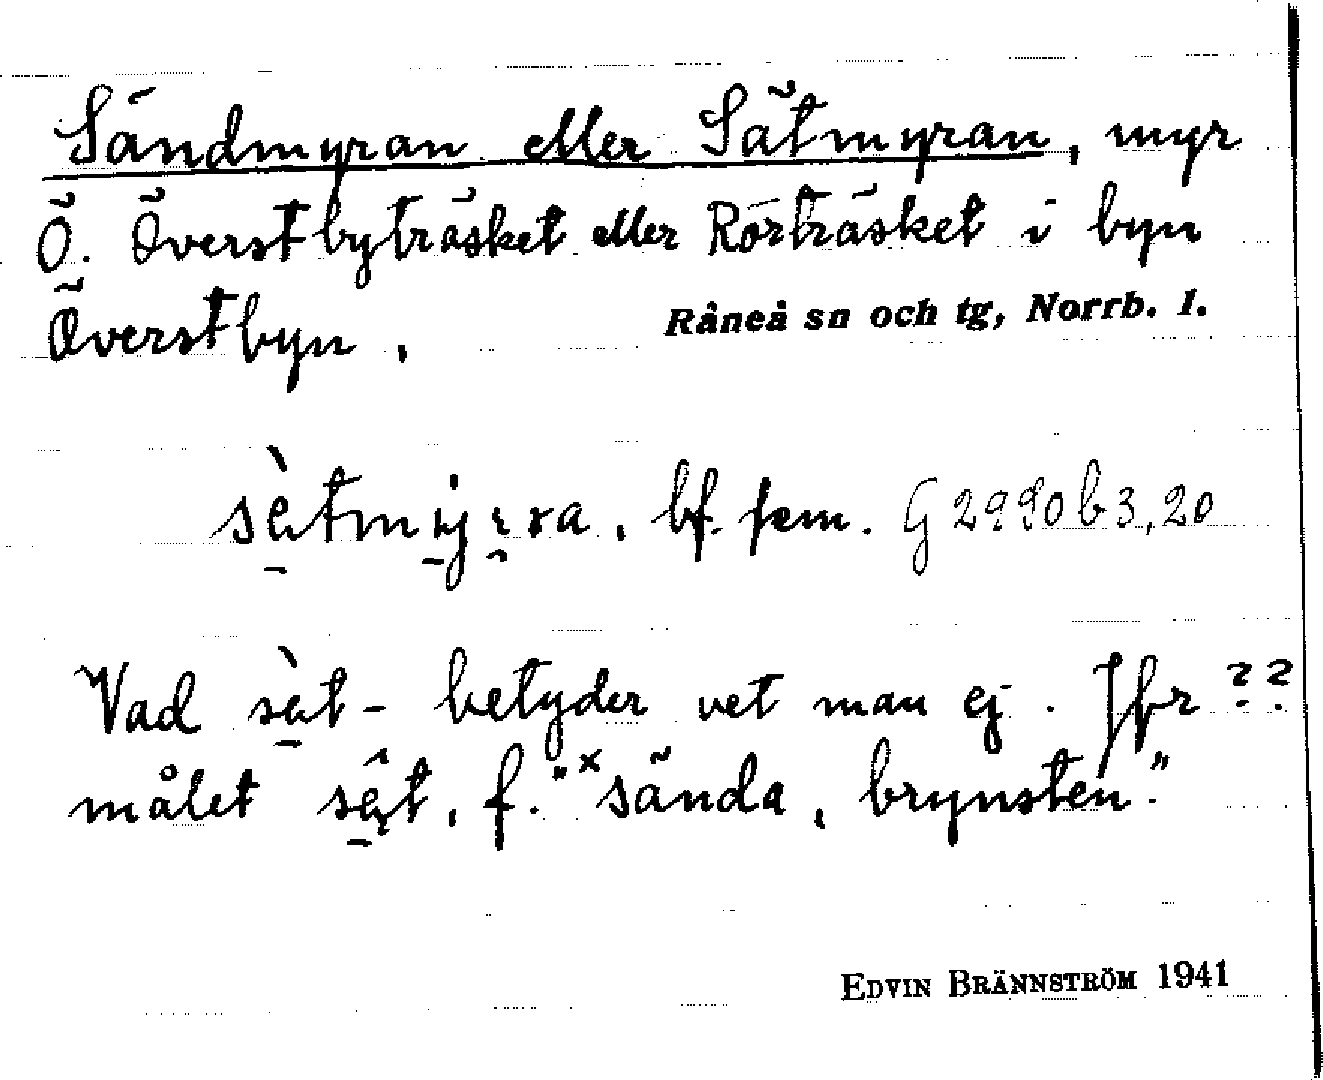 Sändmyran eller Sätmyran, myr
Ö. Överstbyträsket eller Rörträsket i byn
Överstbyn.
Råneå sn och tg, Norrb. l.
bf. fem. G 2990 b 3, 20
Vad sät- betyder vet man ej. Jfr ??
målet f. "ˣsända, brynsten."
EDVIN BRÄNNSTRÖM 1941